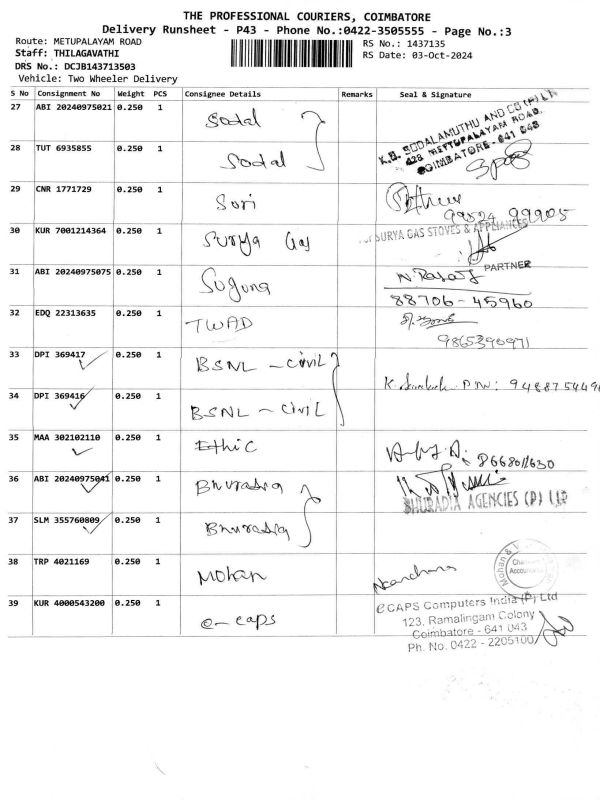 THE PROFESSIONAL COURIERS, COIMBATORE
Delivery Runsheet - P43 - Phone No.:0422-3505555 - Page No.:3
Route: METUPALAYAM ROAD
RS No.: 1437135
Staff: THILAGAVATHI
RS Date: 03-Oct-2024
DRS No.: DCJB143713503
Vehicle: Two Wheeler Delivery
S No Consignment No Weight PCS Consignee Details Remarks Seal & Signature
27 ABI 20240975021 0.250 1 Sodal
K.S. SODALAMUTHU AND CO (P) LTD
428 METTUPALAYAM ROAD,
COIMBATORE - 641 043
28 TUT 6935855 0.250 1 Sodal
29 CNR 1771729 0.250 1 Sori
99524 99905
30 KUR 7001214364 0.250 1 Surya Gas
SURYA GAS STOVES & APPLIANCES
PARTNER
31 ABI 20240975075 0.250 1 Suguna
88706-45960
32 EDQ 22313635 0.250 1 TWAD
9865390971
33 DPI 369417 0.250 1 BSNL - civil
34 DPI 369416 0.250 1 BSNL - civil
35 MAA 302102110 0.250 1 Ethic
36 ABI 20240975041 0.250 1 Bhuradia
BHURADIA AGENCIES (P) LTD
37 SLM 355760809 0.250 1 Bhuradia
38 TRP 4021169 0.250 1 Mohan
39 KUR 4000543200 0.250 1 e-caps
eCAPS Computers India (P) Ltd
123, Ramalingam Colony
Coimbatore - 641 043
Ph. No. 0422 - 2205100